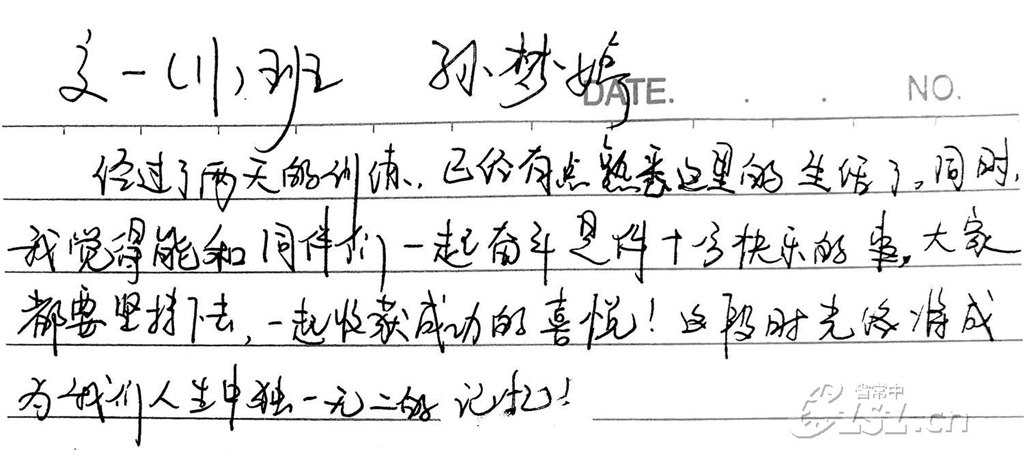 高一(11)班 孙梦婷
DATE. . . NO.
经过了两天的训练,已经有点熟悉这里的生活了。同时,
我觉得能和同伴们一起奋斗是件十分快乐的事,大家
都要坚持下去,一起收获成功的喜悦!这段时光终将成
为我们人生中独一无二的记忆!
省常中
.cn